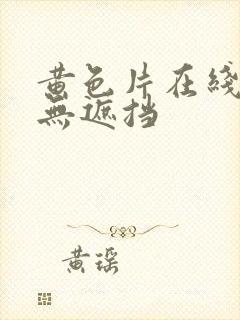 黄色片在綫
無遮挡
黄瑈